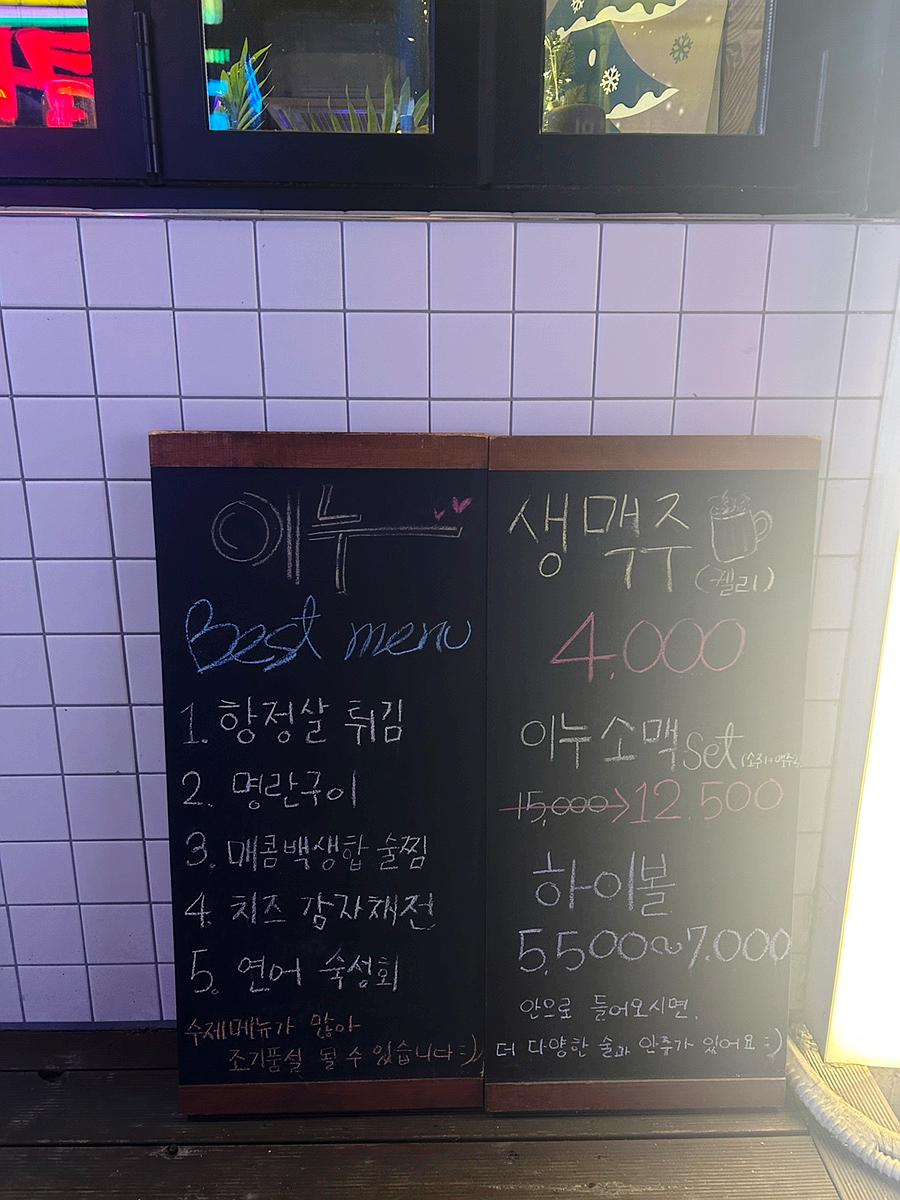 이누
Best menu
1. 항정살 튀김
2. 명란구이
3. 매콤백생합 술찜
4. 치즈 감자채전
5. 연어 숙성회
수제메뉴가 많아
조기품절 될 수 있습니다 :)
생맥주
(켈리)
4,000
이누소맥 set (소주1+맥주2)
15,000 → 12.500
하이볼
5,500~7.000
안으로 들어오시면,
더 다양한 술과 안주가 있어요 :)